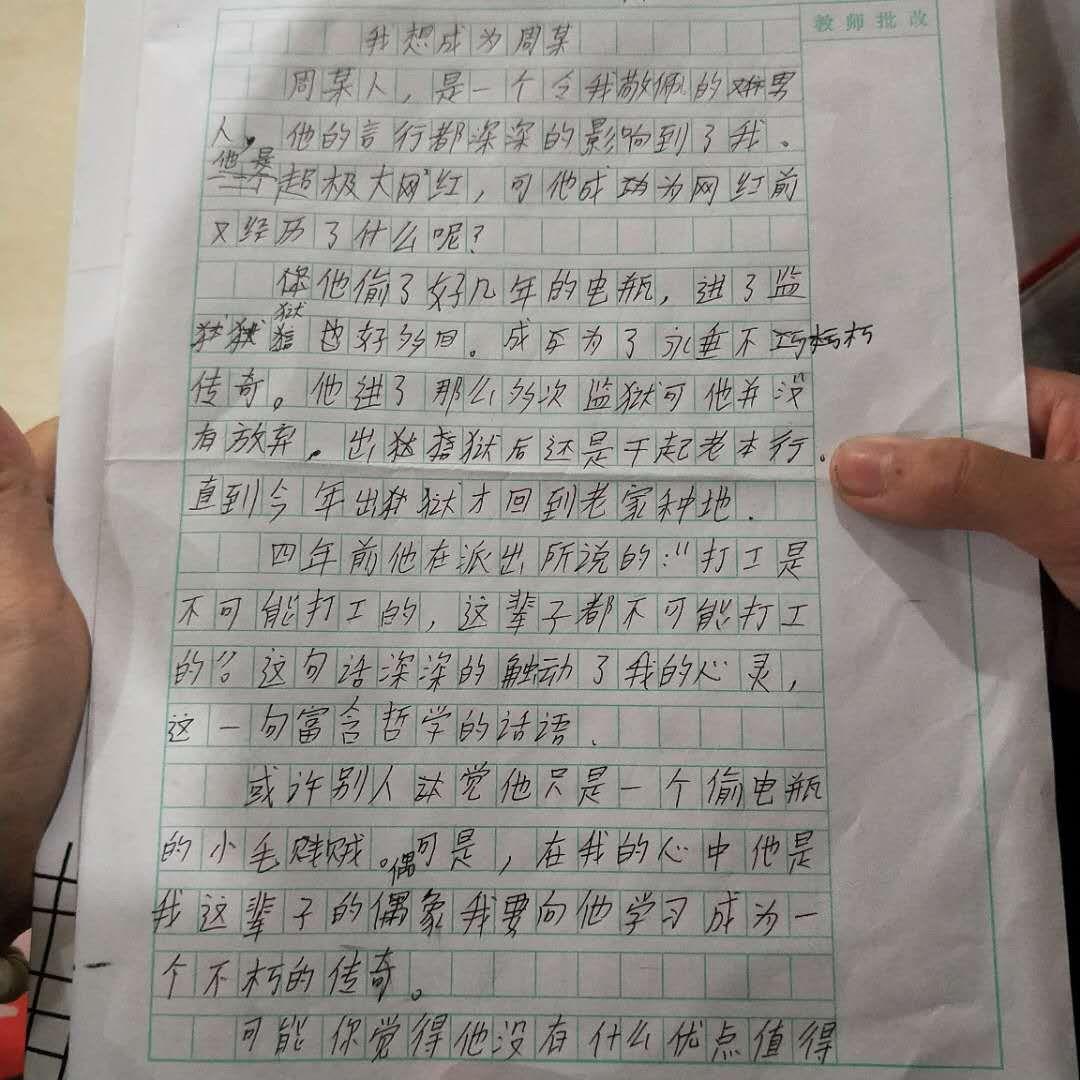 教师批改
我想成为周某
周某人，是一个令我敬佩的男
人。他的言行都深深的影响到了我。
他是超极大网红，可他成功为网红前
又经历了什么呢？
他偷了好几年的电瓶，进了监
狱好多回。成为了永垂不朽
传奇。他进了那么多次监狱可他并没
有放弃。出狱后还是干起老本行。
直到今年出狱才回到老家种地.
四年前他在派出所说的：“打工是
不可能打工的，这辈子都不可能打工
的”。这句话深深的触动了我的心灵，
这一句富含哲学的话语.
或许别人觉他只是一个偷电瓶
的小毛贼。可是，在我的心中他是
我这辈子的偶象我要向他学习成为一
个不朽的传奇。
可能你觉得他没有什么优点值得